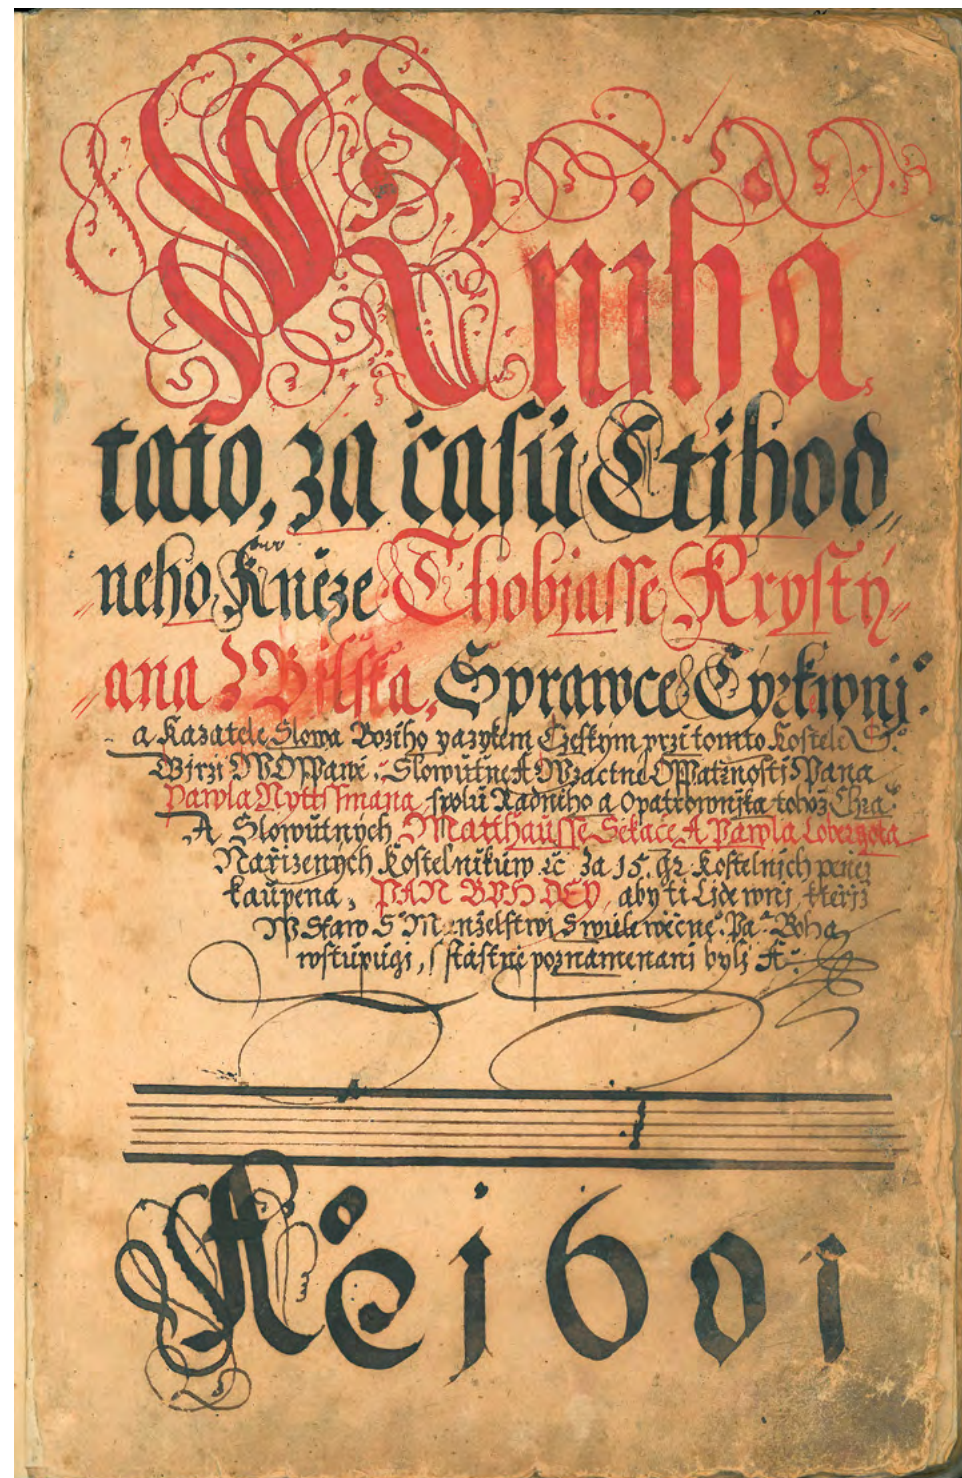 Kniha
tato, za časů Ctihod„
neho Kněze Thobiasse Krysty„
ana z Bilska, Sprawce Cyrkwnj°
a Kazatele Slowa Bozího yazykem Czeskym przi tomto Kostele S°
Slowutne A Wzactne OPatrnosti Pana
Pawla spolu Radního a Opatrownjka tohož
A Slowutných Matthausse Sekače A Pawla Lobergota
Nařizenych Kostelnikůw ꝛč za 15. Kostelnich
kaupena, PAN BVH DEY, aby ti Lide wni, kteřiž
W Staw S° Manželstwi Boha
wstupugi, sstastně poznamenani byli A°
Ač 1601